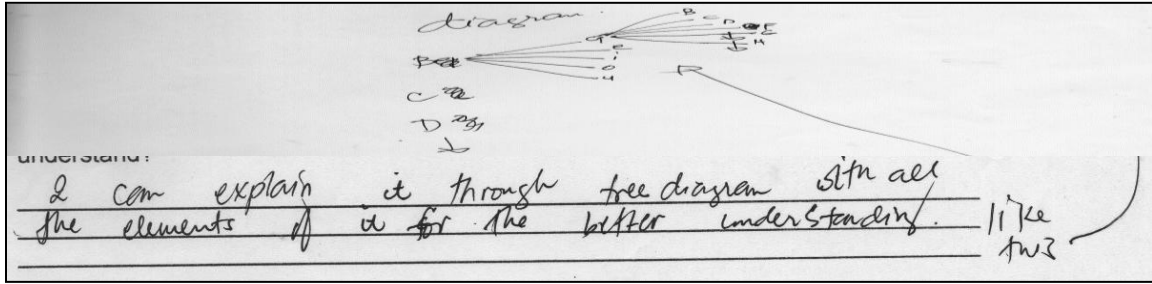 diagram.
B
C
D
F
G
H
a
e
i
o
u
B
C
D
understand?
I can explain it through tree diagram with all
the elements of it for the better understanding.
like
this